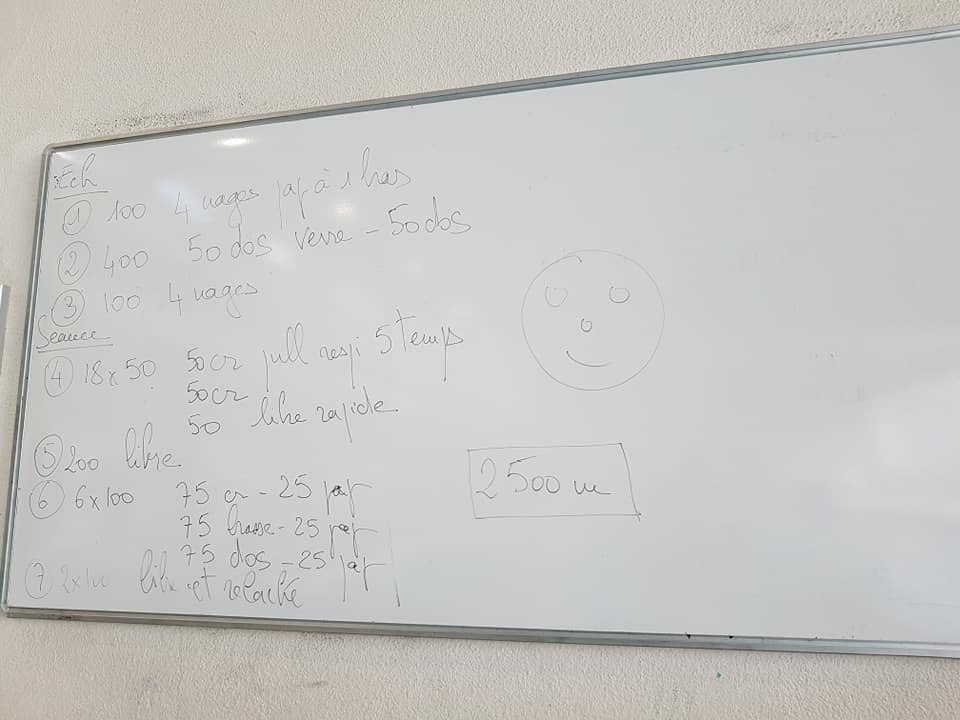 Ech
① 100 4 nages pap à 1 bras
② 400 50 dos verse - 50 dos
③ 100 4 nages
Séance
④ 18 x 50 50 cr pull respi 5 temps
50 cr
50 libre rapide
⑤ 200 libre
⑥ 6 x 100 75 cr - 25 pap
75 brasse - 25 pap
75 dos - 25 pap
⑦ 2 x 100 libre et relaché
2500 m